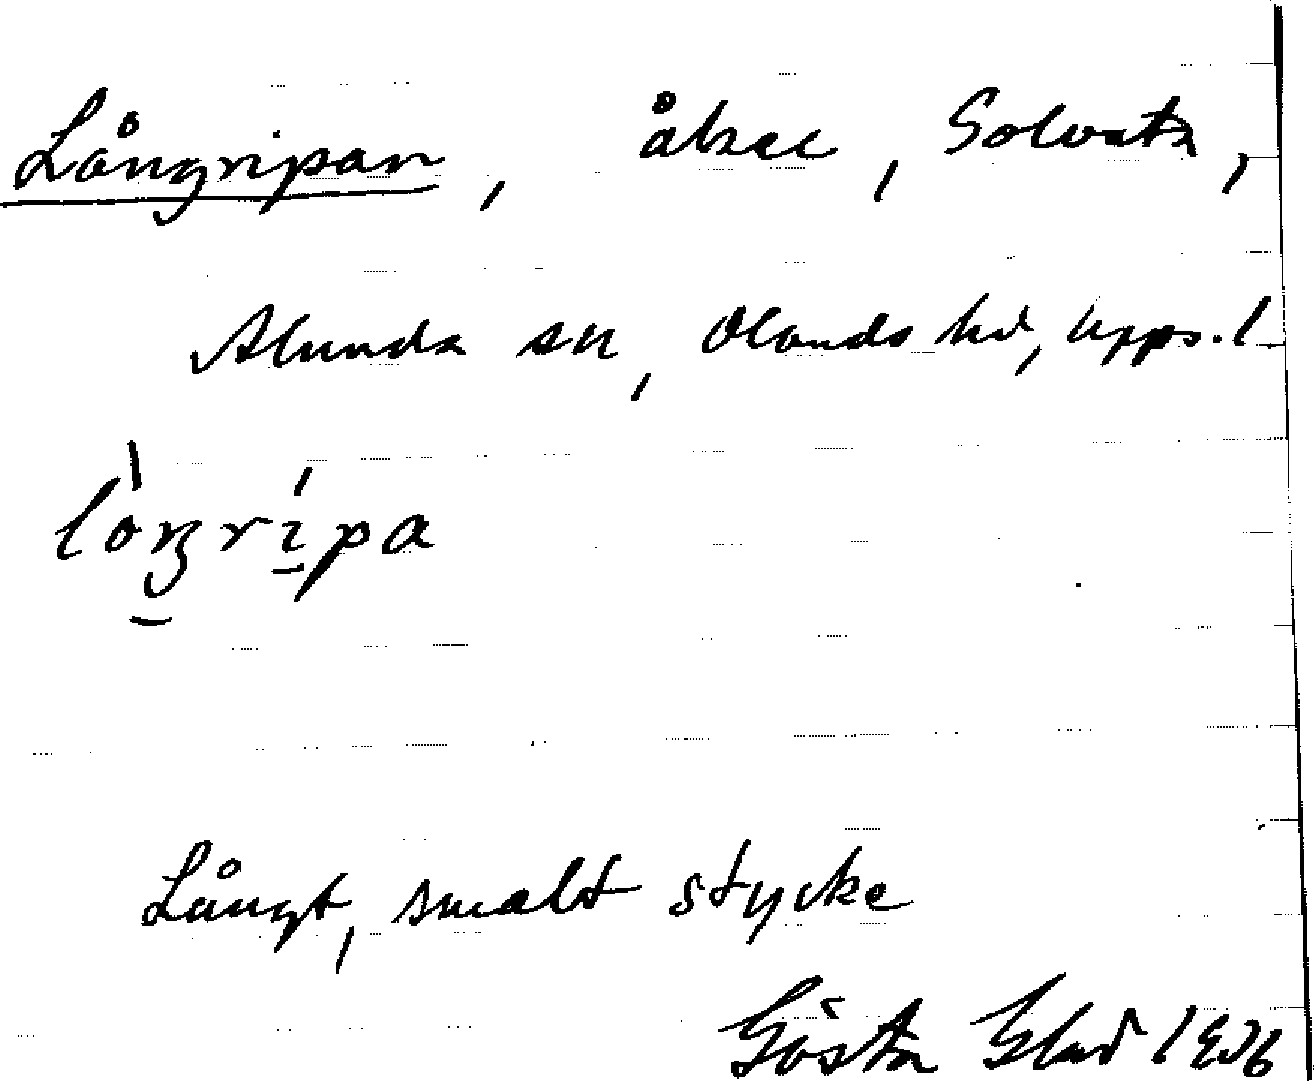 Långripan, åker, Solvata,
Alunda sn, Olands hd, Uppl.
lòŋrípa
Långt, smalt stycke
Gösta Glad 1936